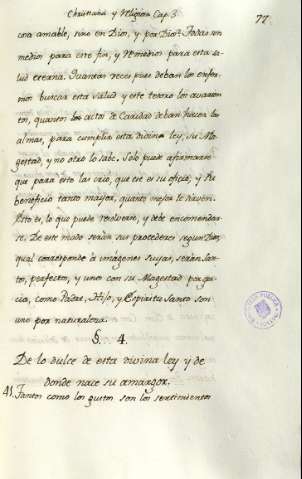 Christiana y Religiosa Cap. 3.
77
cosa amable, sino en Dios, y por Dios. Todas son
medios para este fin, y remedios para esta sa-
lud eterna. Quantas veces pues deban los enfer-
mos buscar esta salud y este tesoro los avarien-
tos, quantos los actos de Caridad deban hacer las
almas, para cumplir esta divina ley, su Ma-
gestad, y no otro lo sabe. Solo puede afirmarse
que para esto las crio, que este es su oficio, y su
beneficio tanto mayor, quanto mejor le sirven.
Esto es, lo que puede resolverse, y debe encomendar-
se. De este modo serán sus procederes segun Dios,
qual corresponde a imágenes suyas, serán san-
tos, perfectos, y unos con su Magestad por gra-
cia, como Padre, Hijo, y Espiritu Santo son
uno por naturaleza.
§. 4.
De lo dulce de esta divina ley y de
donde nace su amargor.
41. Tantos como los gustos son los sentimientos